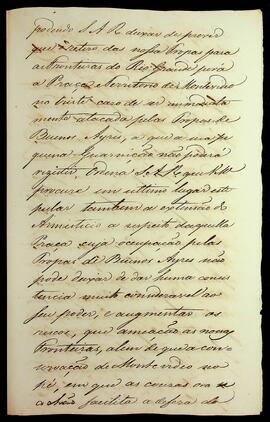 podendo S. A. R. deixar de prever
que o retiro das nossas Tropas para
as Fronteiras do Rio Grande porá
a Praça e Territorio de Montevideo
no triste caso de ser immediata
mente atacada pelas Tropas de
Buenos Ayres, a que a sua pe
quena Guarnição não poderá
resistir. Ordena S. A. R. que V. M.
procure em ultimo lugar esti
pular tambem a extensão do
Armisticio a respeito daquella
Praça cuja occupação pelas
Tropas de Buenos Ayres não
pode deixar de dar huma consis
tencia muito consideravel ao
seu poder, e augmentar os
riscos, que ameação as nossas
Fronteiras, além de que a con
servação de Montevideo no
pé, em que as cousas ora se
achão facilita a defeza do